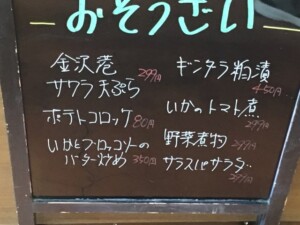 おそうざい
金沢巻
サワラ天ぷら 299円
ポテトコロッケ 80円
いかとブロッコリーの
バター炒め 350円
ギンダラ粕漬
450円
いかのトマト煮
299円
野菜煮物 299円
サラスパサラダ
299円